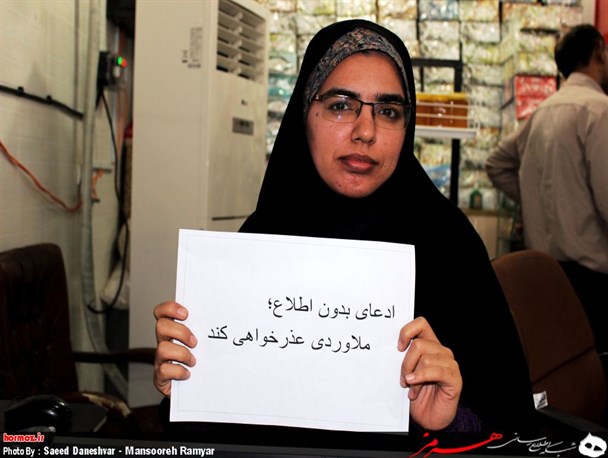 ادعای بدون اطلاع؛
ملاوردی عذرخواهی کند
hormoz.ir
Photo By : Saeed Daneshvar - Mansooreh Ramyar
شبکه اطلاع رسانی هرمز